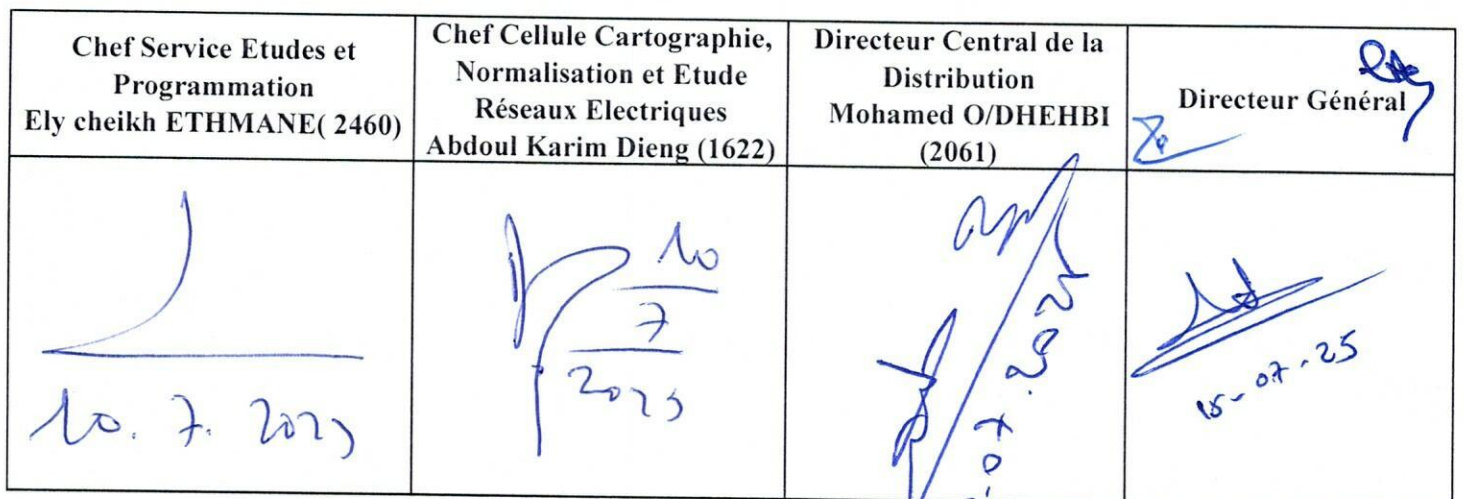 Chef Service Etudes et
Programmation
Ely cheikh ETHMANE( 2460)
Chef Cellule Cartographie,
Normalisation et Etude
Réseaux Electriques
Abdoul Karim Dieng (1622)
Directeur Central de la
Distribution
Mohamed O/DHEHBI
(2061)
Directeur Général
10. 7. 2025
10
7
2025
15-07-25